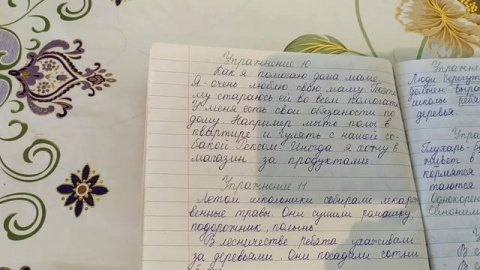 Упражнение 10
Как я помогаю дома маме.
Я очень люблю свою маму. Поэто-
му стараюсь ей во всем помогать
У меня есть свои обязаности по
дому. Например мыть полы в
квартире и гулять с нашей со-
бакой Рексом. Иногда я хожу в
магазин за продуктами.
Упражнение 11
Летом школьники собирали лекарс-
венные травы. Они сушили ромашку,
подорожник, полынь.
В лесничестве ребята ухаживали
за деревьями. Они посадили сотни
Упражнение
Люди берегут
должен выра
школы ребя
деревья.
Упра
Глухарь-
живёт в
кормятся
таются
Однокорен
Синоним
Уп
В с
В с